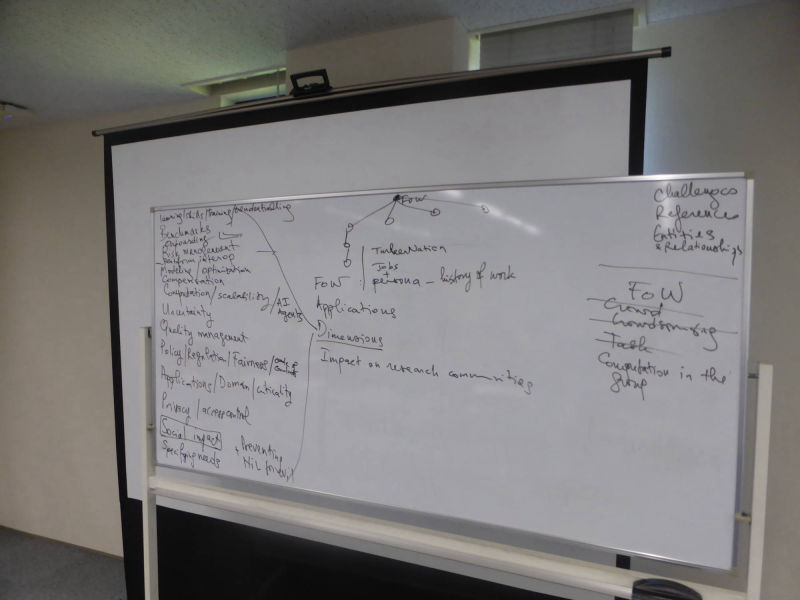 Learning/skills/training/credentialling
Benchmarks
Onboarding
Risk management
Platform interop
Modeling/optimization
Compensation
Computation/scalability/AI Agents
Uncertainty
Quality management
Policy/Regulation/Fairness/
Applications/Domain/criticality
Privacy/access control
Social impact
Specifying needs
+ Preventing
FoW
TurkerNation
Jobs
+
persona - history of work
FoW :
Applications
Dimensions
Impact on research communities
Challenges
References
Entities
& Relationships
FoW
Crowd
Crowdsourcing
Task
Computation in the
group